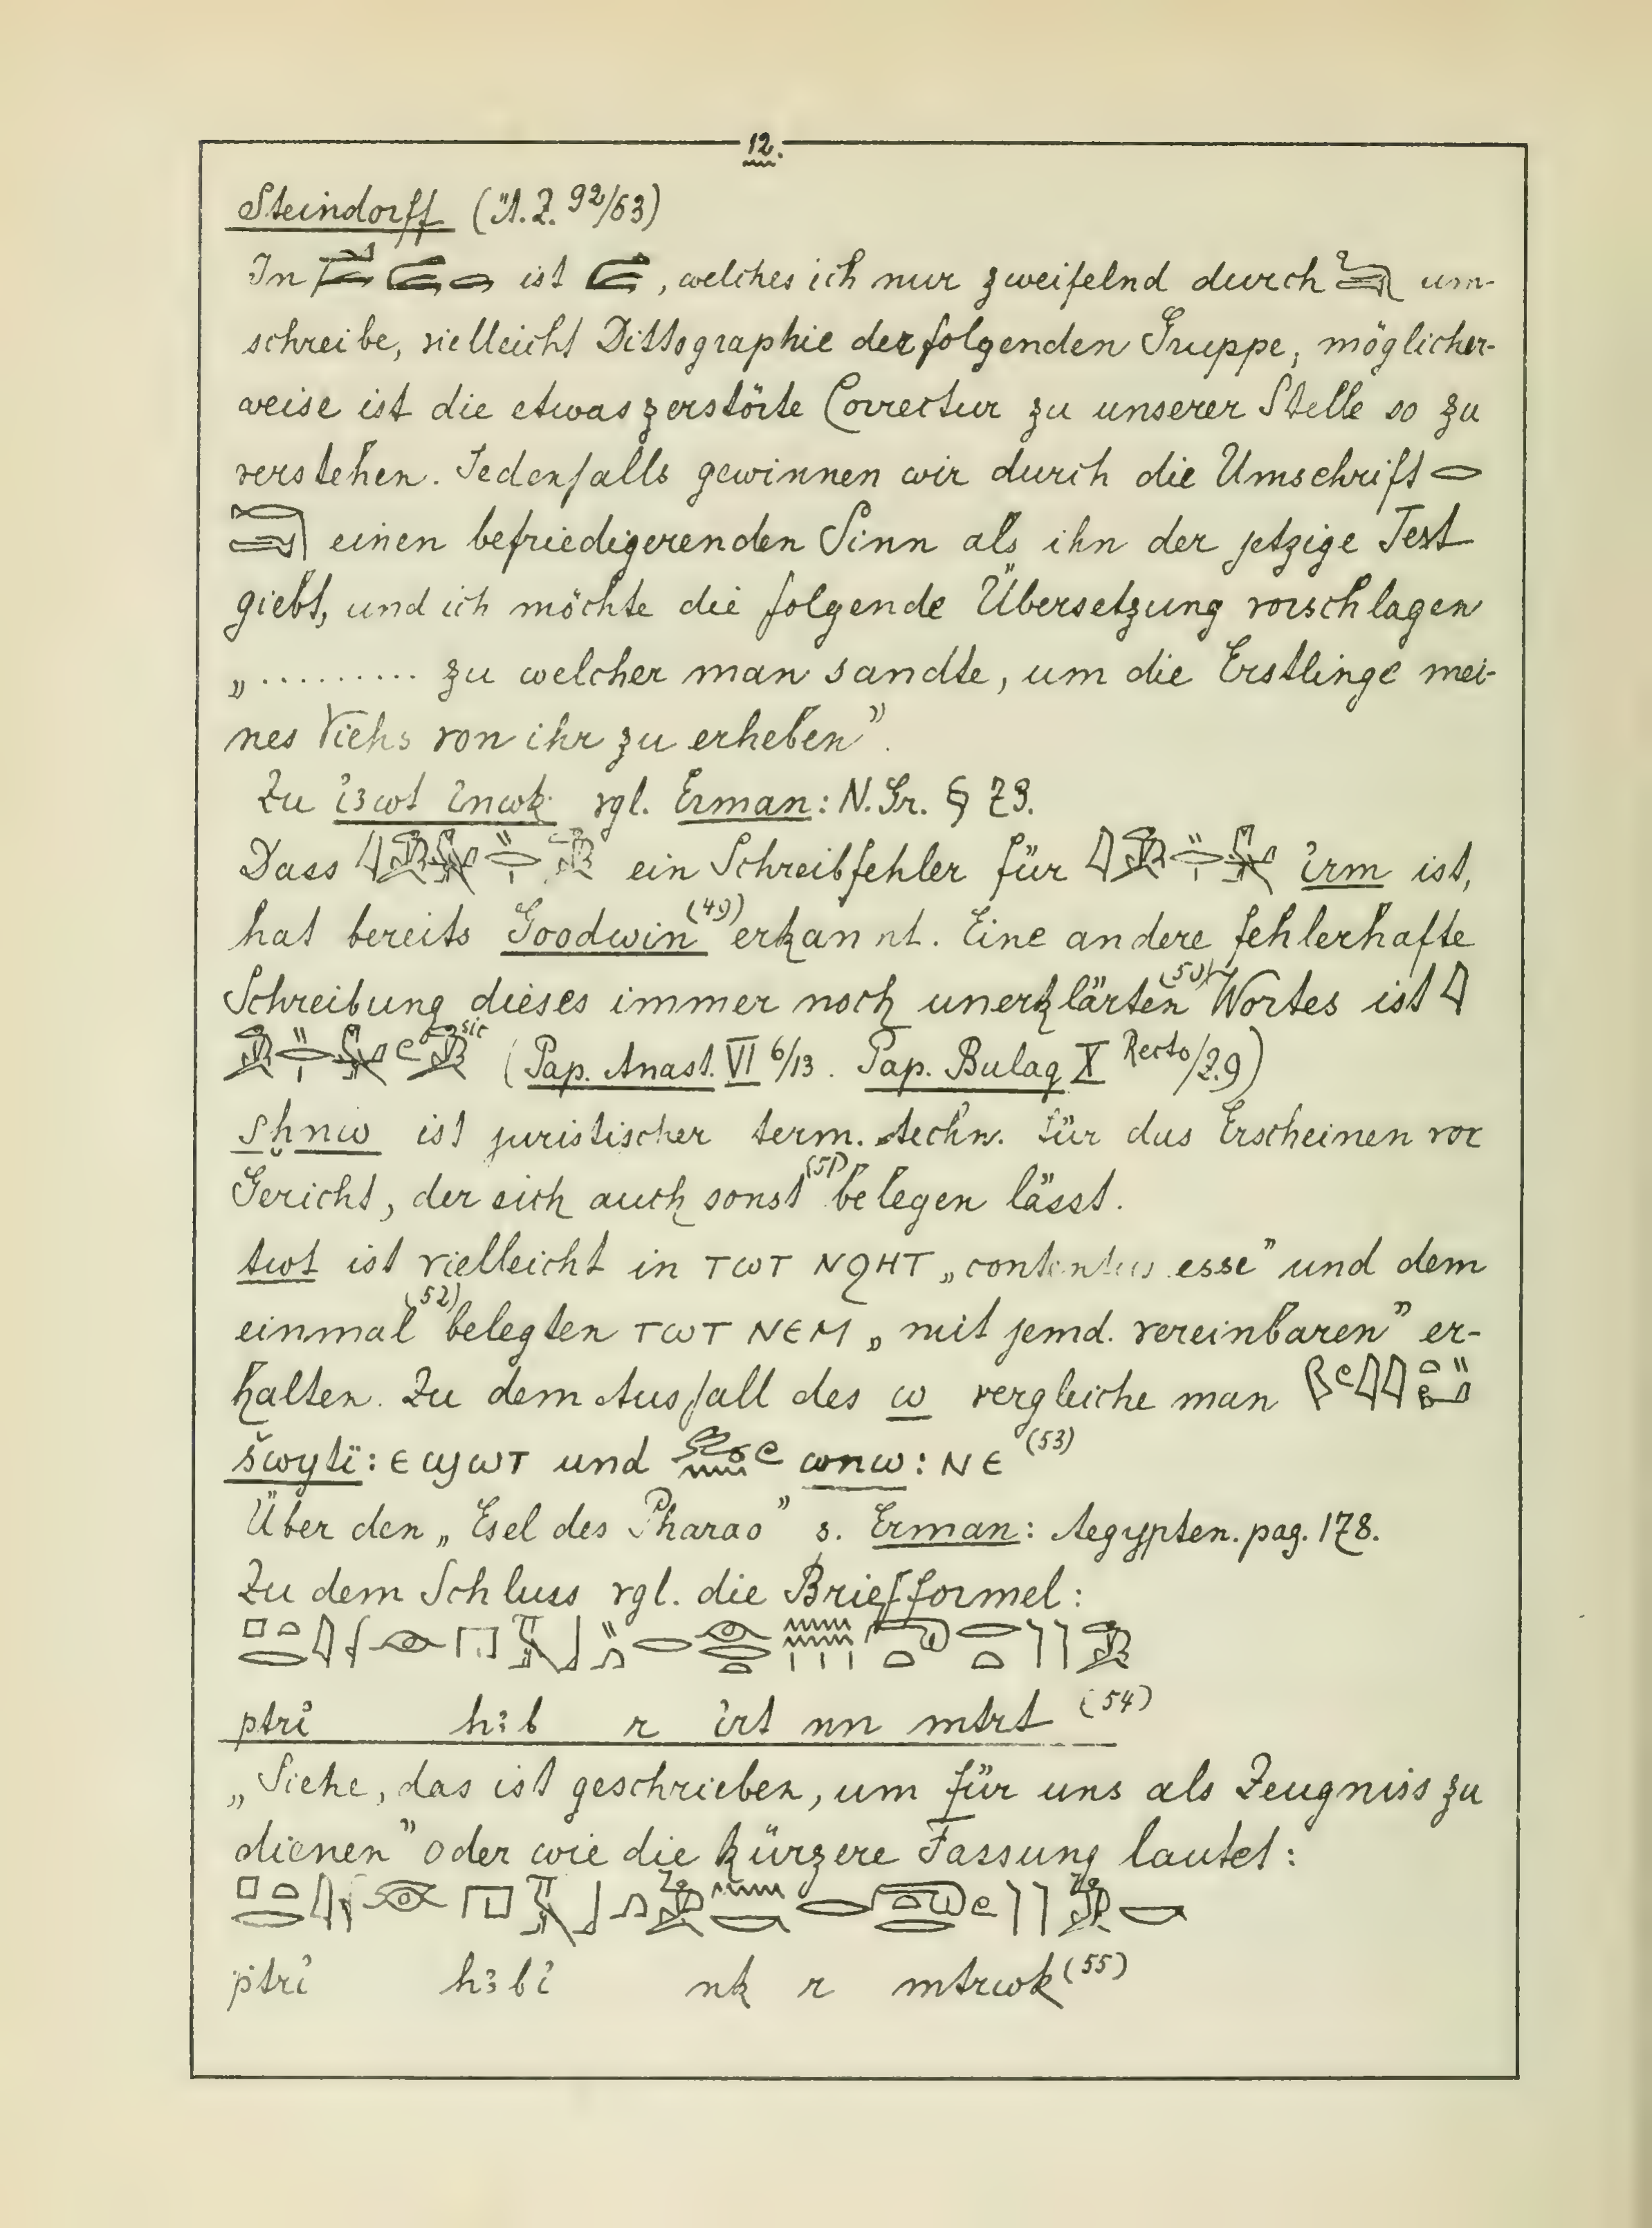 12.
Steindorff (Ä.Z. 92/63)
In ist , welches ich nur zweifelnd durch um-
schreibe, vielleicht Dittographie der folgenden Gruppe, möglicher-
weise ist die etwas zerstörte Correctur zu unserer Stelle so zu
verstehen. Jedenfalls gewinnen wir durch die Umschrift 𓂋
einen befriedigerenden Sinn als ihn der jetzige Text
giebt, und ich möchte die folgende Übersetzung vorschlagen
„ .......... zu welcher man sandte, um die Erstlinge mei-
nes Viehs von ihr zu erheben”.
Zu vgl. Erman: N. Gr. § 79.
Dass ein Schreibfehler für i̓rm ist,
hat bereits Goodwin (49) erkannt. Eine andere fehlerhafte
Schreibung dieses immer noch unerklärten (50) Wortes ist 𓇋
sic (Pap. Anast. VI 6/13. Pap. Bulaq X Recto/2.9)
sḫnw ist juristischer term. techn. für das Erscheinen vor
Gericht, der sich auch sonst (51) belegen lässt.
twt ist vielleicht in ⲧⲱⲧ ⲛϩⲏⲧ „contentus esse” und dem
einmal (52) belegten ⲧⲱⲧ ⲛⲉⲙ „mit jemd. vereinbaren” er-
halten. Zu dem Ausfall des w vergleiche man
šwyti̓: ⲉϣⲱⲧ und wnw: ⲛⲉ (53)
Über den „Esel des Pharao” s. Erman: Aegypten. pag. 178.
Zu dem Schluss vgl. die Briefformel:
ptri̓ hꜣb r i̓rt nn mtrt (54)
„Siehe, das ist geschrieben, um für uns als Zeugniss zu
dienen” oder wie die kürzere Fassung lautet:
ptri̓ hꜣbi̓ nk r mtrwk (55)